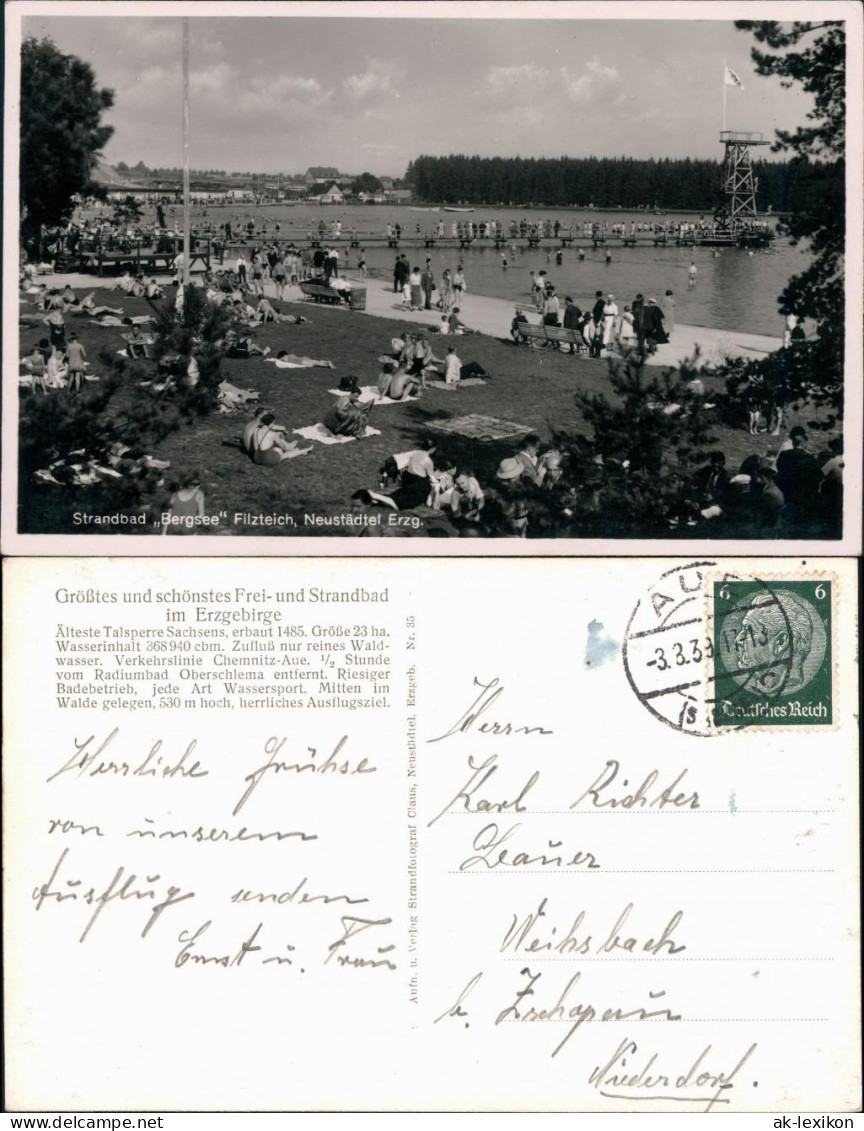 Strandbad „Bergsee" Filzteich, Neustädtel Erzg.
Größtes und schönstes Frei- und Strandbad
im Erzgebirge
Älteste Talsperre Sachsens, erbaut 1485. Größe 23 ha.
Wasserinhalt 368 940 cbm. Zufluß nur reines Wald-
wasser. Verkehrslinie Chemnitz-Aue. 1/2 Stunde
vom Radiumbad Oberschlema entfernt. Riesiger
Badebetrieb, jede Art Wassersport. Mitten im
Walde gelegen, 530 m hoch, herrliches Ausflugsziel.
Herrliche Grühse
von unserem
Ausflug senden
Ernst u. Frau
Aufn. u. Verlag Strandfotograf Claus, Neustädtel, Erzgeb. Nr. 35
AUE
-3.3.39 17-18
(S
6 6
Deutsches Reich
Herrn
Karl Richter
Bauer
Weihsbach
b. Zschopau
Niederdorf.
ak-lexikon